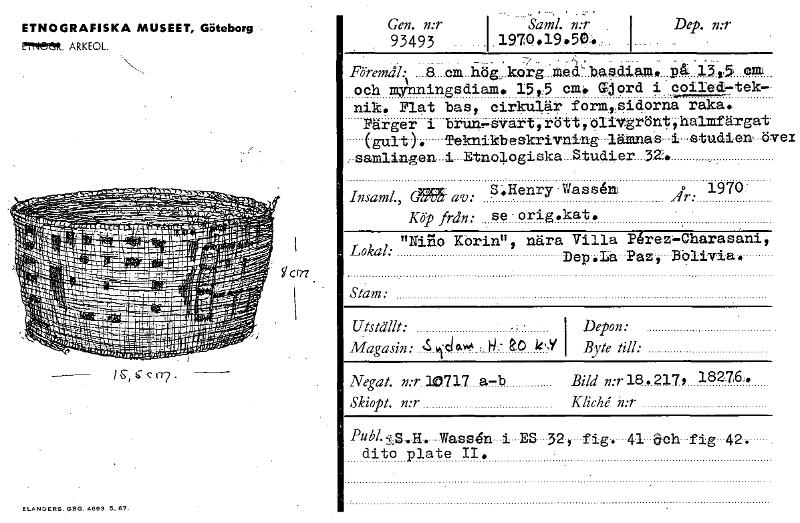 ETNOGRAFISKA MUSEET, Göteborg
ETNOGR. ARKEOL.
8 cm.
15,5 cm.
ELANDERS. GBG. 4693. 5. 67.
Gen. n:r Saml. n:r Dep. n:r
93493 1970.19.50.
Föremål: 8 cm hög korg med basdiam. på 13,5 cm
och mynningsdiam. 15,5 cm. Gjord i coiled-tek-
nik. Flat bas, cirkulär form, sidorna raka.
Färger i brun-svart, rött, olivgrönt, halmfärgat
(gult). Teknikbeskrivning lämnas i studien över
samlingen i Etnologiska Studier 32.
Insaml., Gåva av: S.Henry Wassén År: 1970
Köp från: se orig.kat.
Lokal: "Niño Korin", nära Villa Pérez-Charasani,
Dep.La Paz, Bolivia.
Stam:
Utställt: Depon:
Magasin: Sydam H 80 k4 Byte till:
Negat. n:r 10717 a-b Bild n:r 18.217, 18276.
Skiopt. n:r Kliché n:r
Publ. S.H. Wassén i ES 32, fig. 41 och fig 42.
dito plate II.